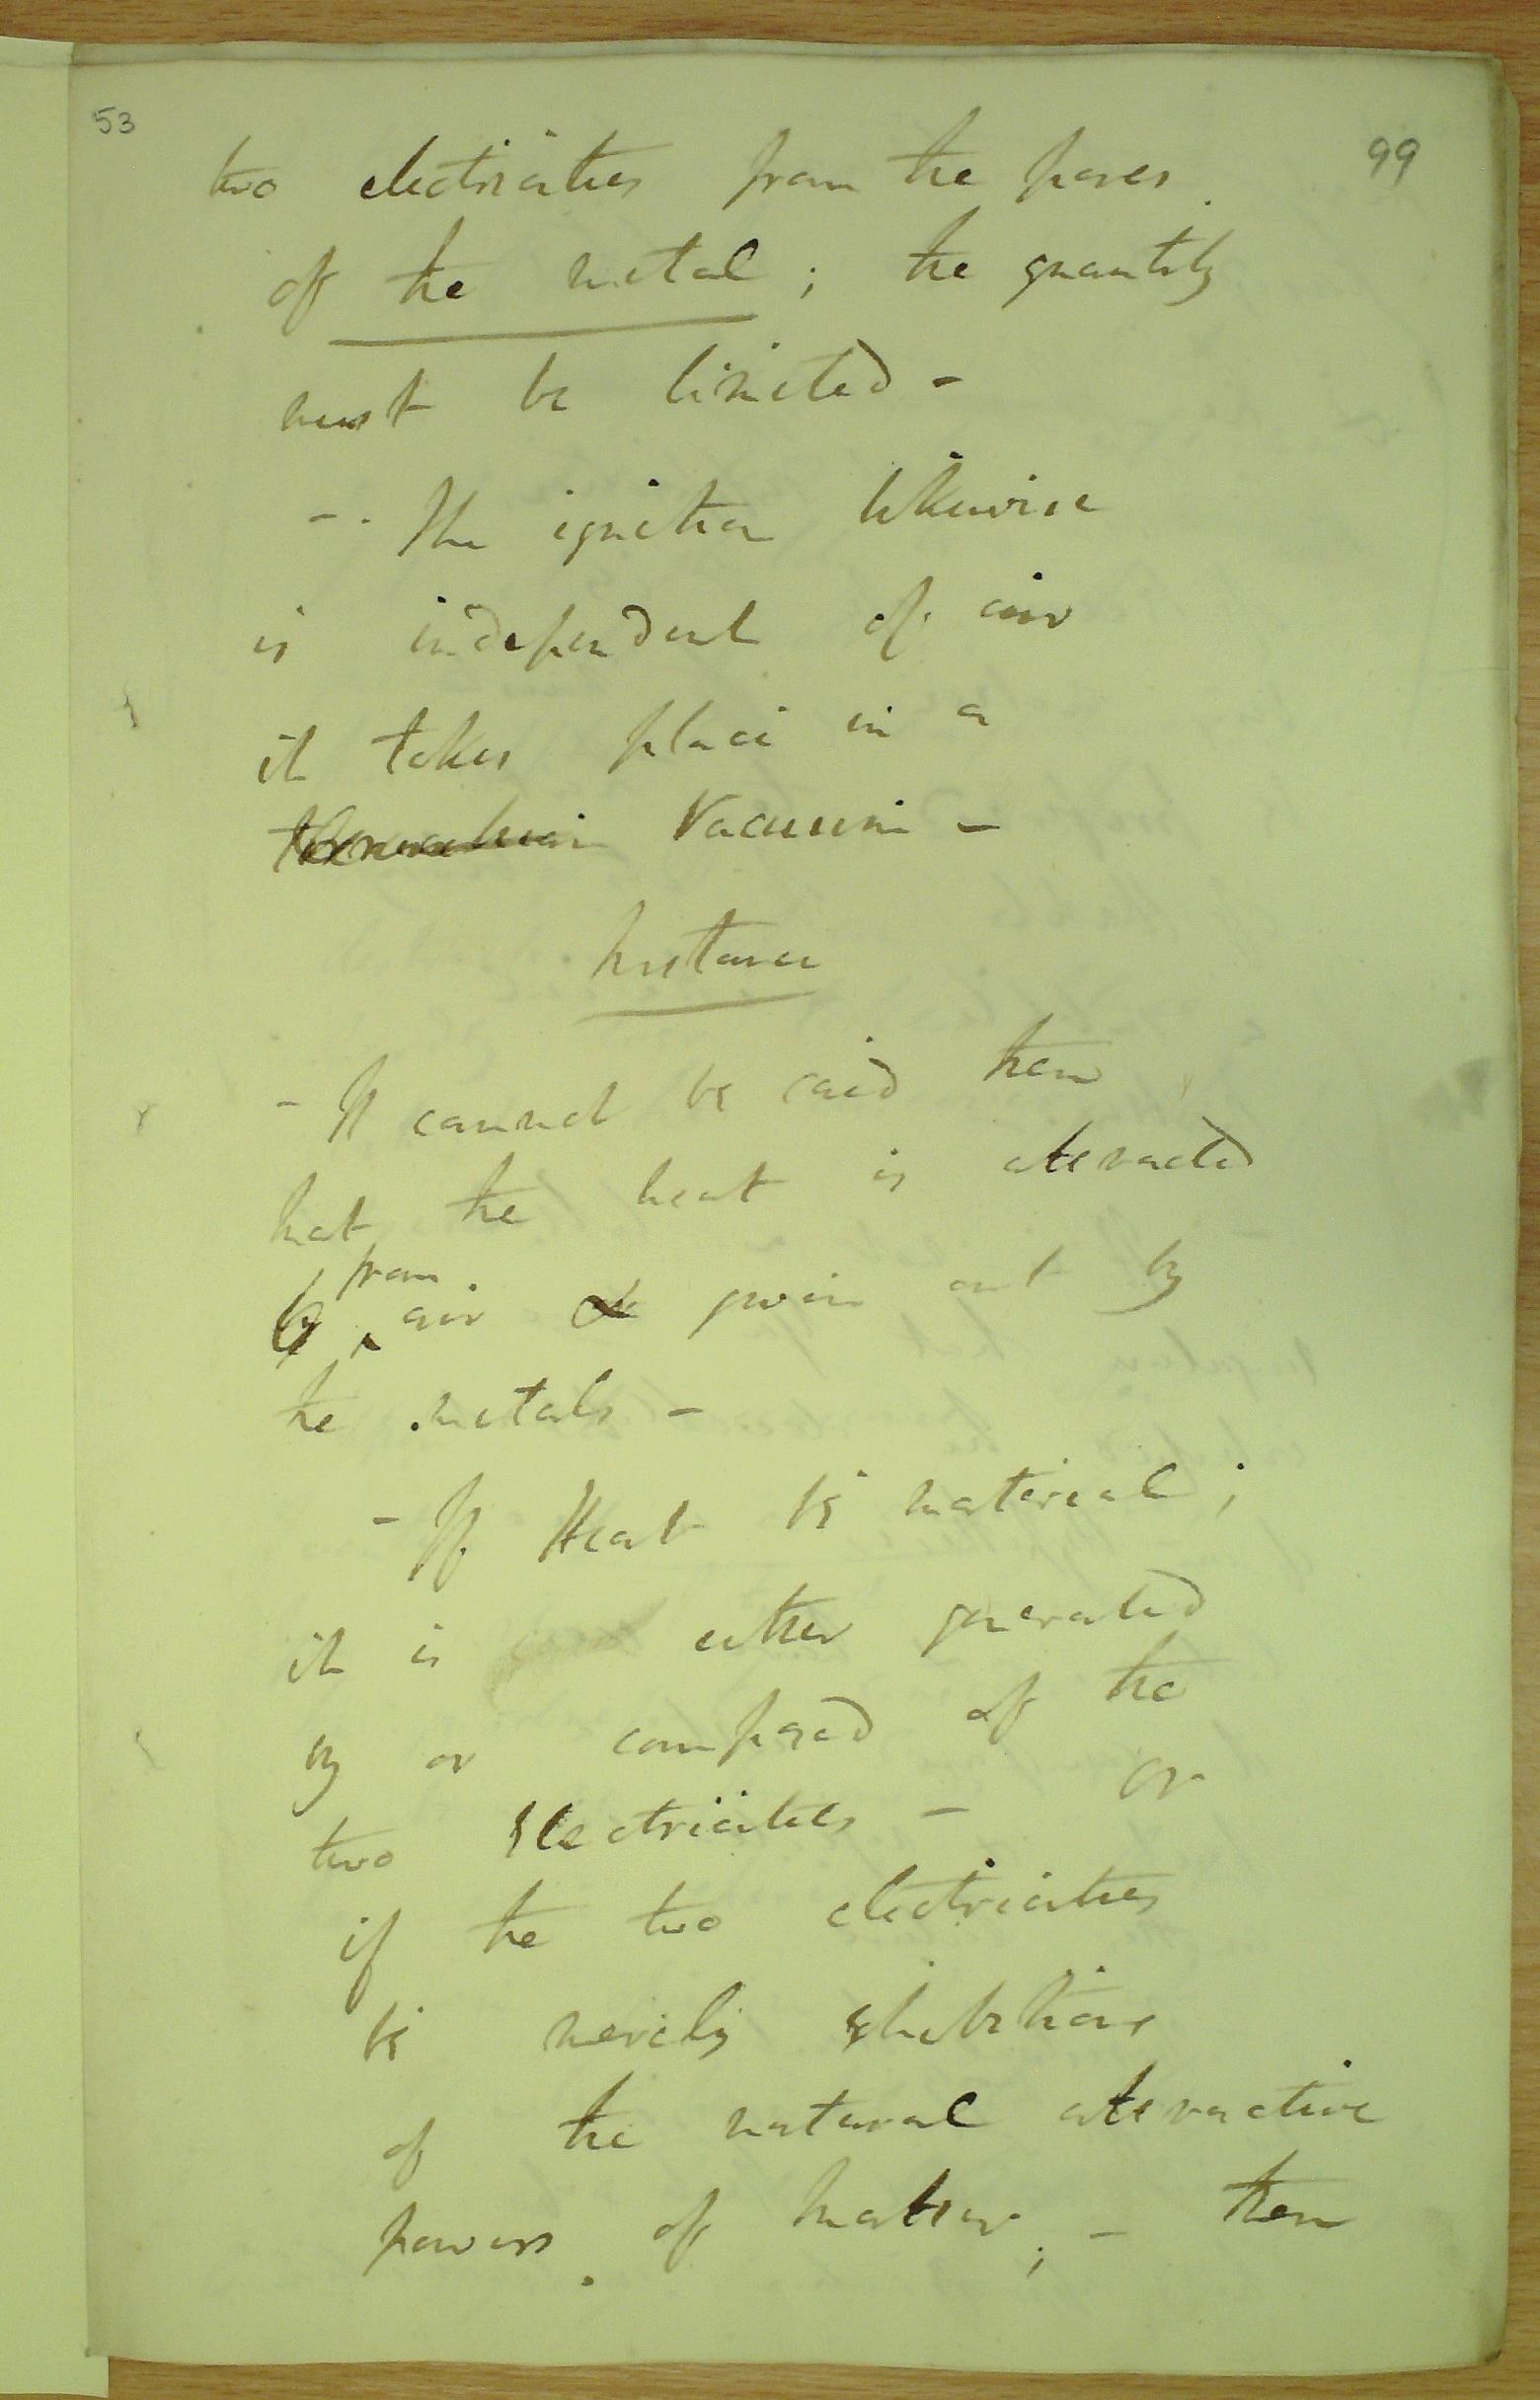 53
99
two electricities from the pores
of the metal; the quantity
must be limited -
- . The ignition likewise
is independent of air
it takes place in a
Vacuum -
Instance
- It cannot be said then
that the heat is attracted
by from air & given out by
the metals -
- If Heat be material;
it is either generated
by or composed of the
two Electricities - or
if the two electricities
be merely exhibitions
of the natural attractive
powers of matter; - then